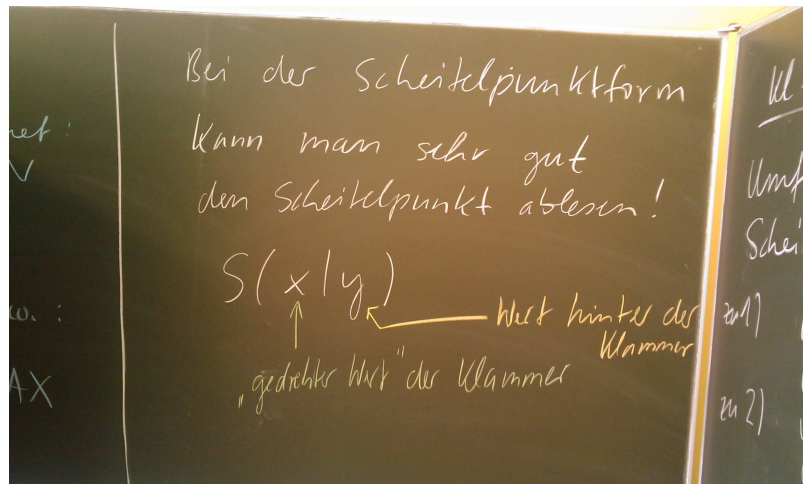 Bei der Scheitelpunktform
kann man sehr gut
den Scheitelpunkt ablesen!
S(x|y)
Wert hinter der
Klammer
„gedrehter Wert" der Klammer
net:
V
w.:
AX
Kl.
Umf
Schei
zu 1)
zu 2)